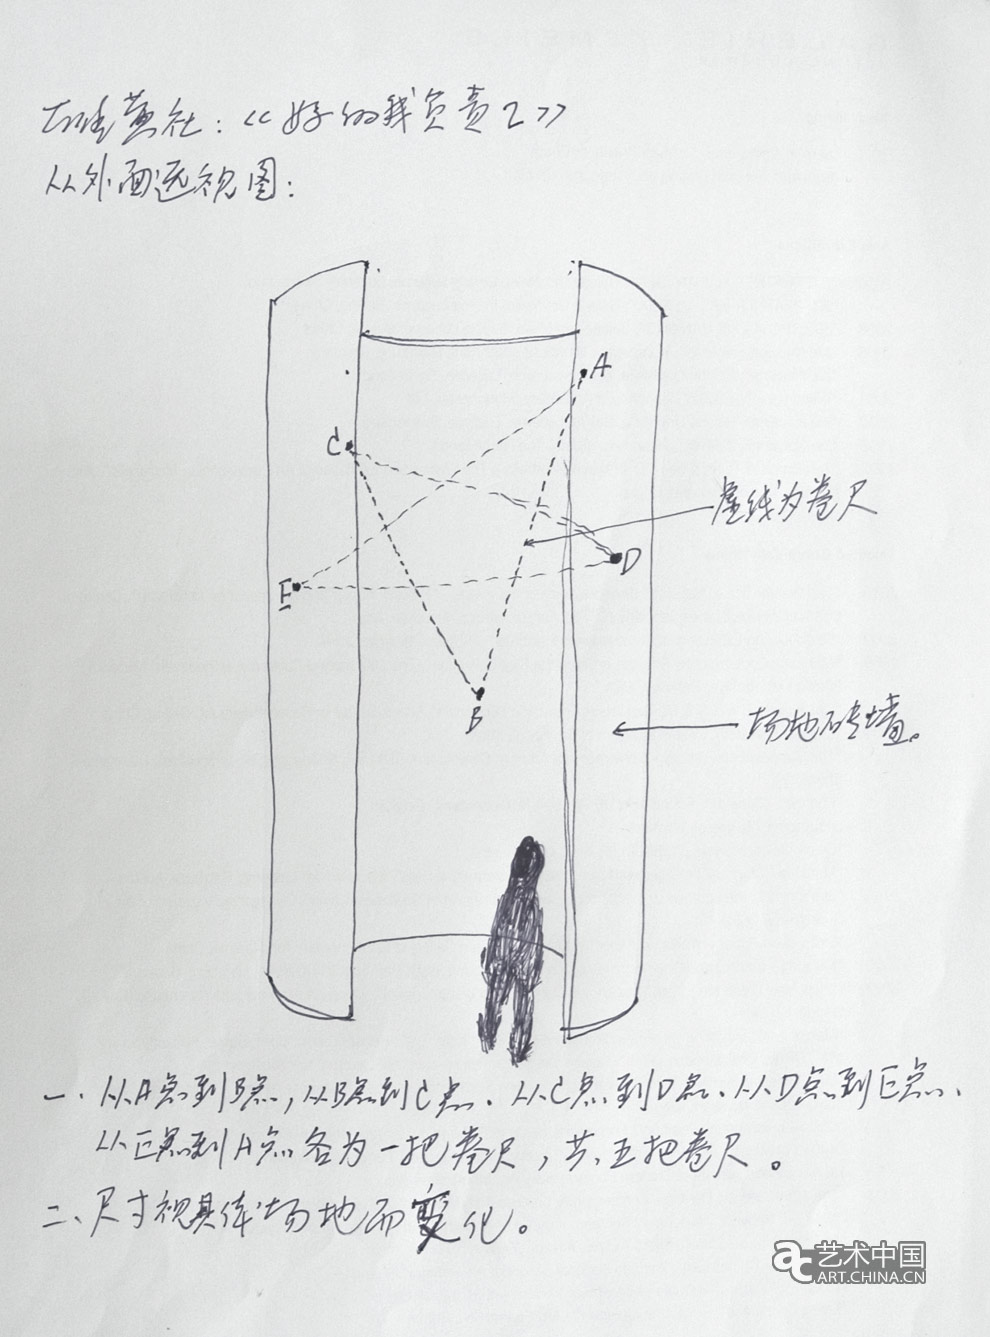 社：《好的我负责2》
从外面透视图：
A
C
虚线为卷尺
D
E
B
场地砖墙。
一、从A点到B点，从B点到C点、从C点到D点、从D点到E点、
从E点到A点各为一把卷尺，共五把卷尺。
二、尺寸视具体场地而变化。
ac 艺术中国
ART.CHINA.CN